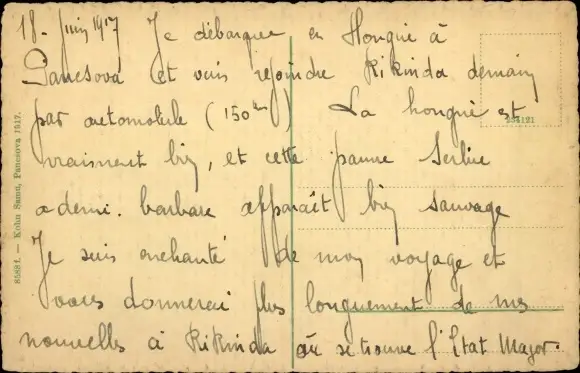 18. Juin 1917 Je débarque en Hongrie à
Pancsova et vais rejoindre Kikinda demain
par automobile (150 km) La hongrie est
vraiment bien, et cette pauvre Serbie
a demi. barbare apparaît bien sauvage
Je suis enchanté de mon voyage et
vous donnerai plus longuement de mes
nouvelles à Kikinda où se trouve l'Etat Major.
85821. — Kohn Samu, Pancsova 1917.